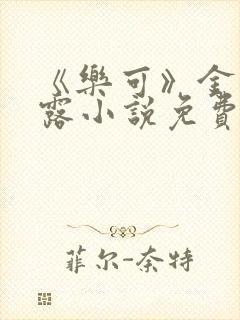 《樂可》金
露小說免費
菲尔-奈特